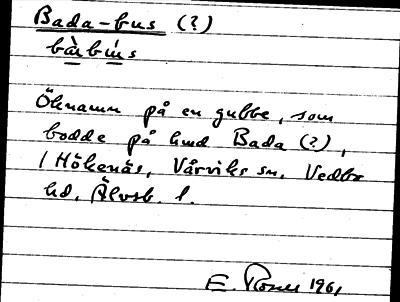 Bada-bus (?)
bàbús
Öknamn på en gubbe, som
bodde på hmd Bada (?),
i Hökenäs, Vårviks sn. Vedbo
hd. Älvsb. l.
E. Rosen 1961